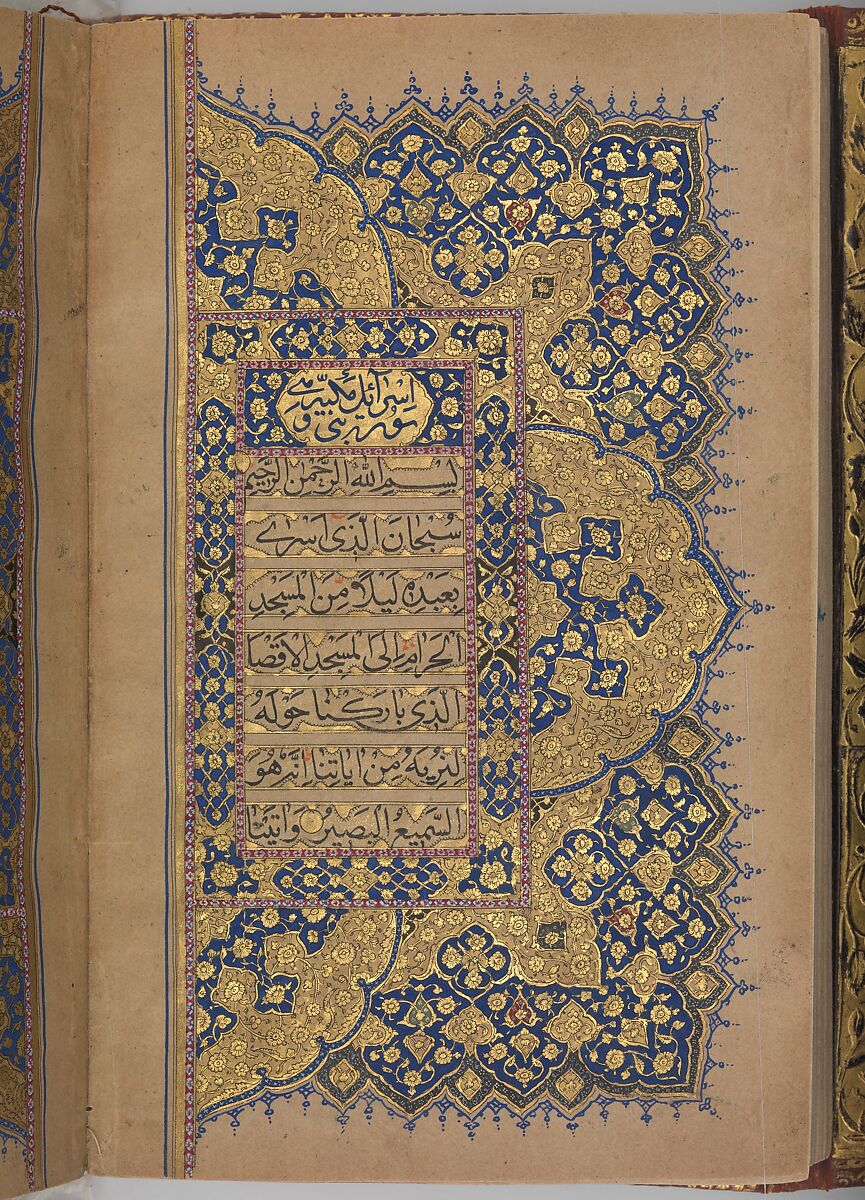 سورة بنی اسرآئل مکیّة و هی
بِسْمِ اللهِ الرَّحْمنِ الرَّحیمِ
سُبْحانَ الَّذی اَسْری
بِعَبْدِهِ لَیْلاً مِنَ الْمَسْجِدِ
الْحَرامِ اِلَی الْمَسْجِدِ الْاَقْصَا
الَّذی بارَکْنا حَوْلَهُ
لِنُرِیَهُ مِنْ ایاتِنا اِنَّهُ هُوَ
السَّمیعُ الْبَصیرُ وَ اتَیْنَا